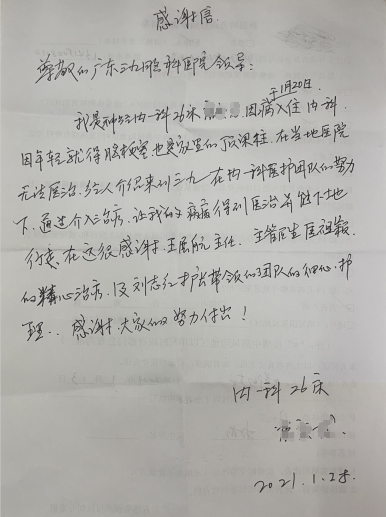 感谢信
尊敬的广东三九脑科医院领导:
于1月20日.
我是神经内一科26床 因病入住内一科.
因年轻就得脑梗塞也是家里的顶梁柱.在当地医院
无法医治.经人介绍来到三九.在内一科医护团队的努力
下.通过介入治疗.让我的疾病得到医治并能下地
行走.在这很感谢.王展航主任.主管医生医祖毅.
的精心治疗.以及刘志红护长带领的团队的细心护
理..感谢大家的努力付出!
内一科26床
2021.1.25